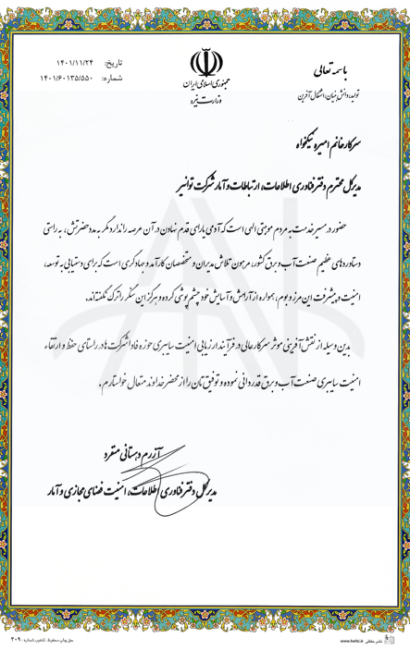 باسمه تعالی
تولید، دانش بنیان، اشتغال آفرین
جمهوری اسلامی ایران
وزارت نیرو
تاریخ: ۱۴۰۱/۱۱/۲۴
شماره: ۱۴۰۱/۶۰۱۳۵/۵۵۰
سرکار خانم امیره نیکخواه
مدیرکل محترم دفتر فناوری اطلاعات، ارتباطات و آمار شرکت توانیر
حضور در مسیر خدمت به مردم موهبتی الهی است که آدمی یارای قدم نهادن در آن عرصه را ندارد مگر به مدد حضرتش، به راستی
دستاوردهای عظیم صنعت آب و برق کشور، مرهون تلاش مدیران و متخصصان کارآمد و جهادگری است که برای دستیابی به توسعه،
امنیت و پیشرفت این مرز و بوم، همواره از آرامش و آسایش خود چشم پوشی کرده و هرگز این سنگر را ترک نگفته‌اند.
بدین وسیله از نقش آفرینی موثر سرکارعالی در فرآیند ارزیابی امنیت سایبری حوزه فاوا شرکت ها، در راستای حفظ و ارتقاء
امنیت سایبری صنعت آب و برق قدردانی نموده و توفیق‌تان را از محضر خداوند متعال خواستارم.
آزرم دهستانی منفرد
مدیرکل دفتر فناوری اطلاعات، امنیت فضای مجازی و آمار
www.hafez.ir